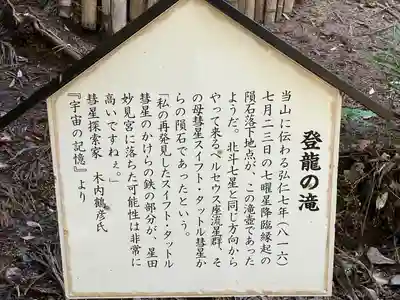 登龍の滝
当山に伝わる弘仁七年（八一六）
七月二三日の七曜星降臨縁起の
隕石落下地点が、この滝壺であった
ようだ。北斗七星と同じ方向から
やって来るペルセウス座流星群、そ
の母彗星スイフト・タットル彗星か
らの隕石であったという。
「私の再発見したスイフト・タットル
彗星のかけらの鉄の部分が、星田
妙見宮に落ちた可能性は非常に
高いですねぇ。」
彗星探索家　木内鶴彦氏
『宇宙の記憶』より